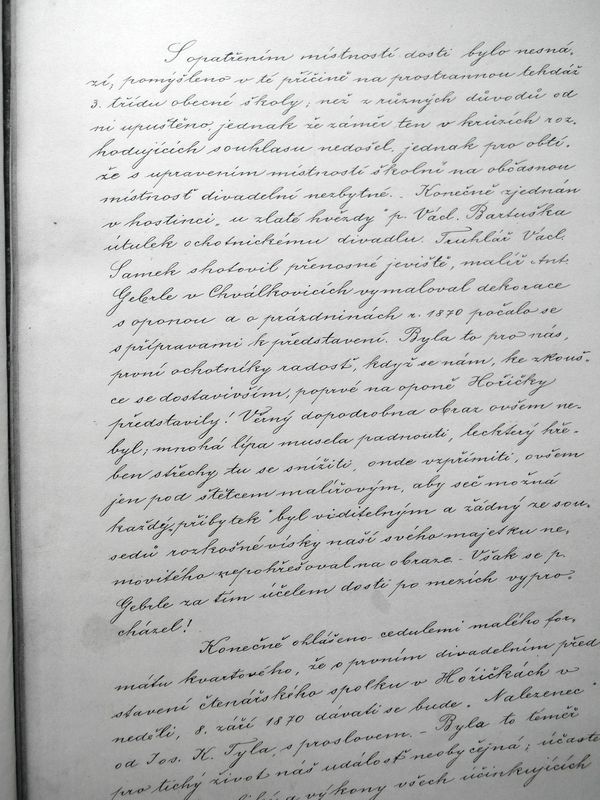 S opatřením místností dosti bylo nesná-
zí, pomýšleno v té příčině na prostrannou tehdáž
3. třídu obecné školy; než z různých důvodů od
ni upuštěno, jednak že záměr ten v kruzích roz-
hodujících souhlasu nedošel, jednak pro obtí-
že s upravením místností školní na občasnou
místnost divadelní nezbytné. - Konečně zjednán
v hostinci „u zlaté hvězdy" p. Václ. Bartuška
útulek ochotnickému divadlu. Truhlář Václ.
Samek shotovil přenosné jeviště, malíř Ant.
Gebrle v Chválkovicích vymaloval dekorace
s oponou a o prázdninách r. 1870 počalo se
s přípravami k představení. Byla to pro nás,
první ochotníky radost, když se nám, ke zkouš-
ce se dostavivším, poprvé na oponě Hořičky
představily! Věrný dopodrobna obraz ovšem ne-
byl; mnohá lípa musela padnouti, leckterý hře-
ben střechy tu se snížiti, onde vzpřímiti, ovšem
jen pod štětcem malířovým, aby seč možná
každý „příbytek" byl viditelným a žádný ze sou-
sedů rozkošné vísky naší svého majetku ne-
movitého nepohřešoval na obraze. - Však se p.
Gebrle za tím účelem dosti po mezích vypro-
cházel!
Konečně ohlášeno cedulemi malého for-
mátu kvartového, že o prvním divadelním před
stavení čtenářského spolku v Hořičkách v
neděli, 8. září 1870 dávati se bude „Nalezenec"
od Jos. K. Tyla, s proslovem. - Byla to téměř
pro tichý život náš událost neobyčejná; účaste
a výkony všech účinkujících